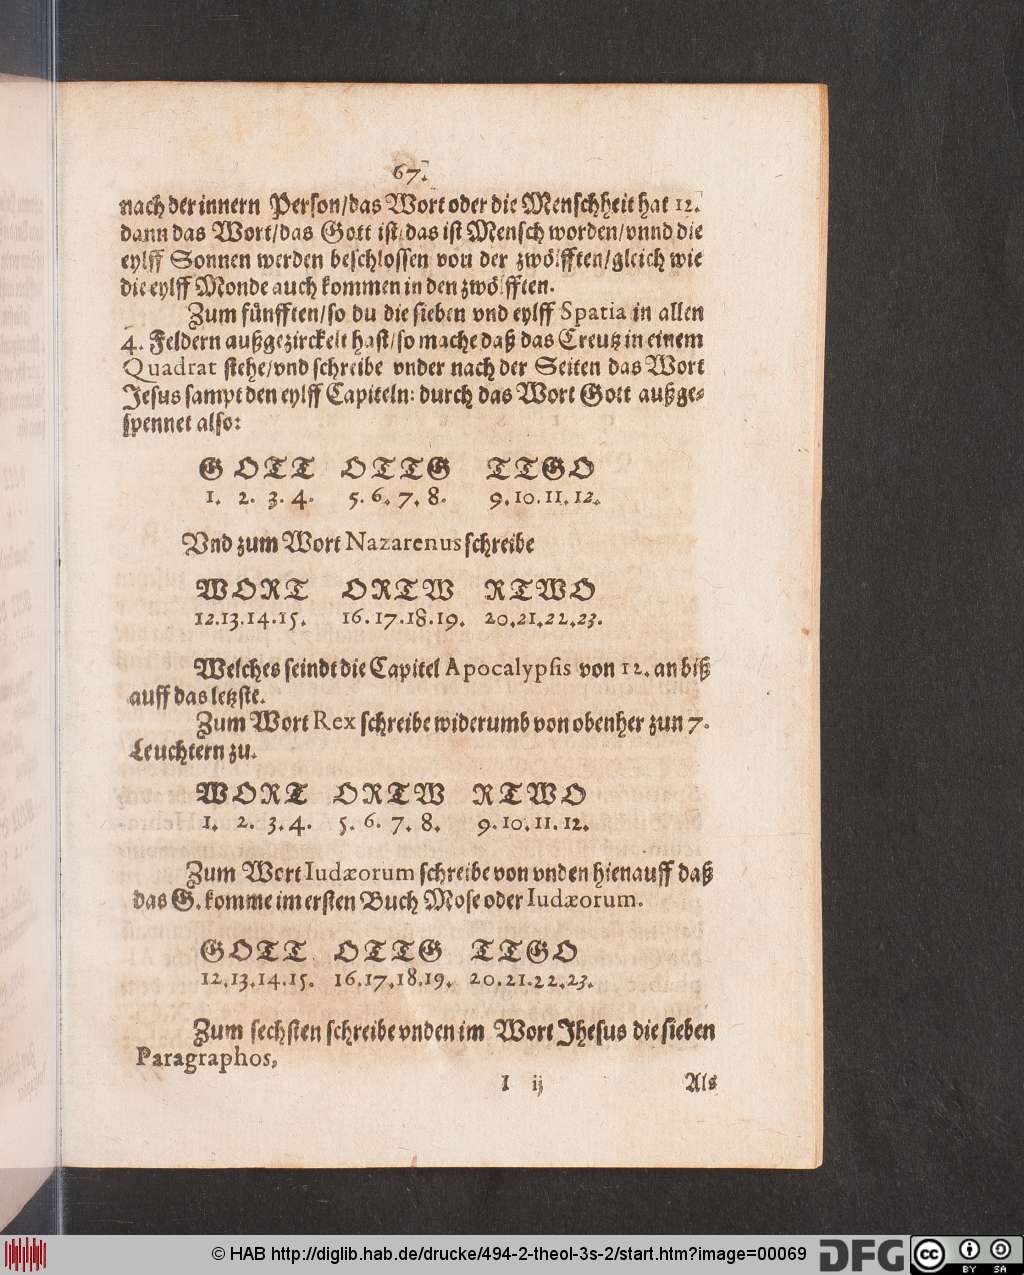 67.
nach der innern Person/das Wort oder die Menschheit hat 12.
dann das Wort/das Gott ist/das ist Mensch worden/vnnd die
eylff Sonnen werden beschlossen von der zwölfften/gleich wie
die eylff Monde auch kommen in den zwölfften.
Zum fünfften/so du die sieben vnd eylff Spatia in allen
4. Feldern außgezirckelt hast/so mache daß das Creutz in einem
Quadrat stehe/vnd schreibe vnder nach der Seiten das Wort
Jesus sampt den eylff Capiteln: durch das Wort Gott außge-
spennet also:
G O T T O T T G T T G O
1. 2. 3. 4. 5. 6. 7. 8. 9. 10. 11. 12.
Vnd zum Wort Nazarenus schreibe
W O R T O R T W R T W O
12. 13. 14. 15. 16. 17. 18. 19. 20. 21. 22. 23.
Welches seindt die Capitel Apocalypsis von 12. an biß
auff das letzste.
Zum Wort Rex schreibe widerumb von obenher zun 7.
Leuchtern zu.
W O R T O R T W R T W O
1. 2. 3. 4. 5. 6. 7. 8. 9. 10. 11. 12.
Zum Wort Iudæorum schreibe von vnden hienauff daß
das G. komme im ersten Buch Mose oder Iudæorum.
G O T T O T T G T T G O
12. 13. 14. 15. 16. 17. 18. 19. 20. 21. 22. 23.
Zum sechsten schreibe vnden im Wort Jhesus die sieben
Paragraphos,
I ij Als
© HAB http://diglib.hab.de/drucke/494-2-theol-3s-2/start.htm?image=00069 DFG cc BY SA